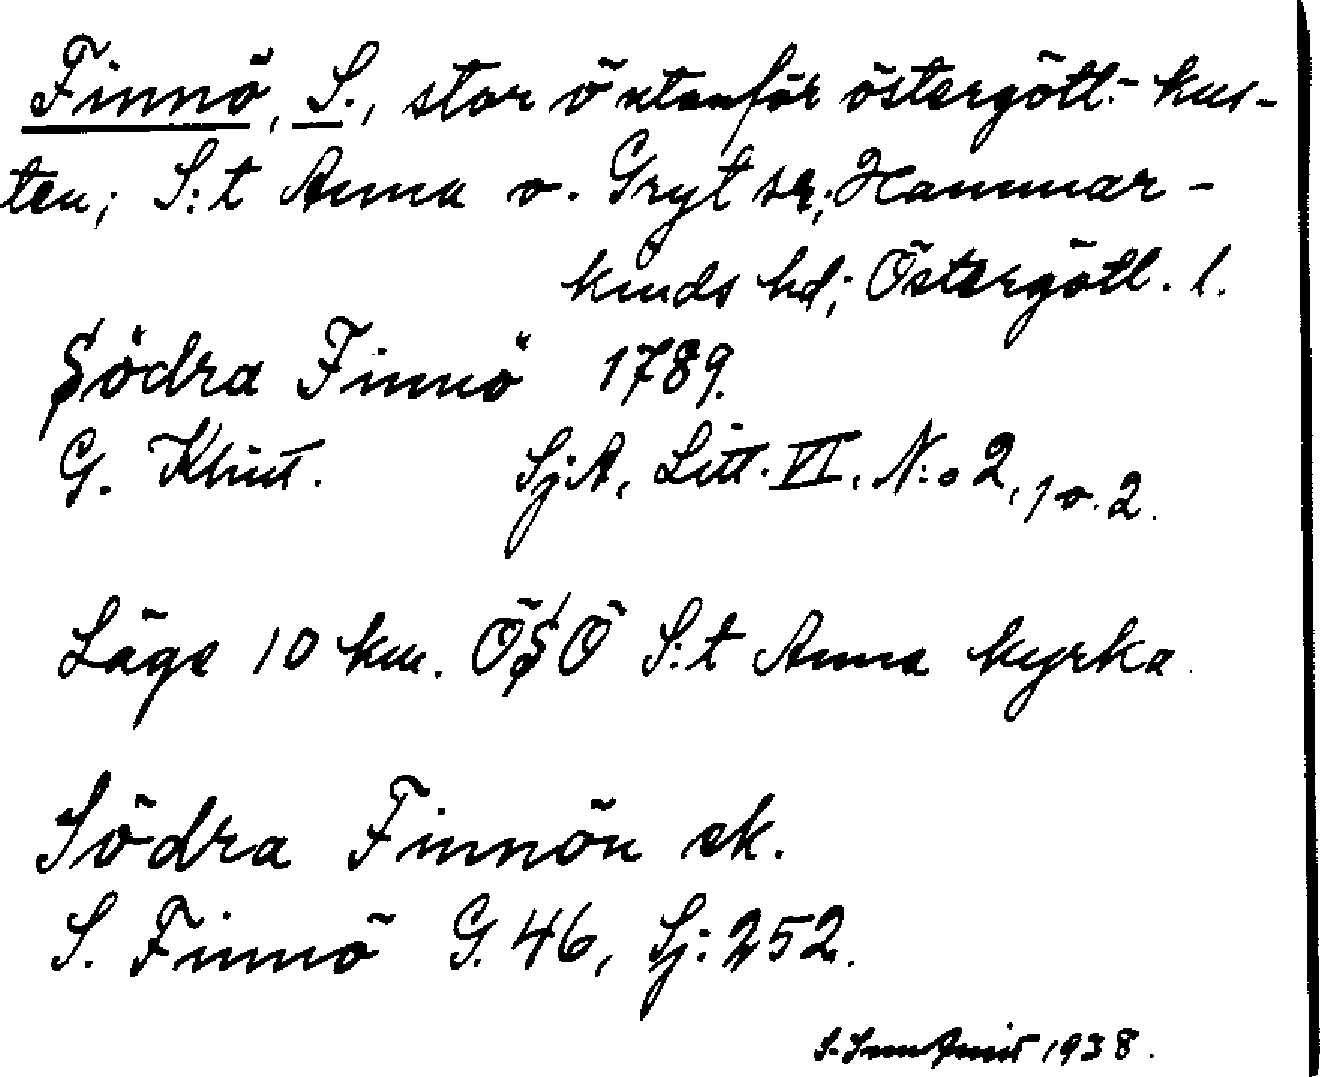 Finnö, S., stor ö utanför östergötl.- kus-
ten; S:t Anna o. Gryt sr; Hammar-
kinds hd; Östergötl. l.
Södra Finnö 1789.
G. Klint. Sj:A, Litt. VI. N:o 2, 1 o. 2.
Läge 10 km. ÖSÖ S:t Anna kyrka.
Södra Finnön ek.
S. Finnö G. 46, Sj: 252.
S. 1938.